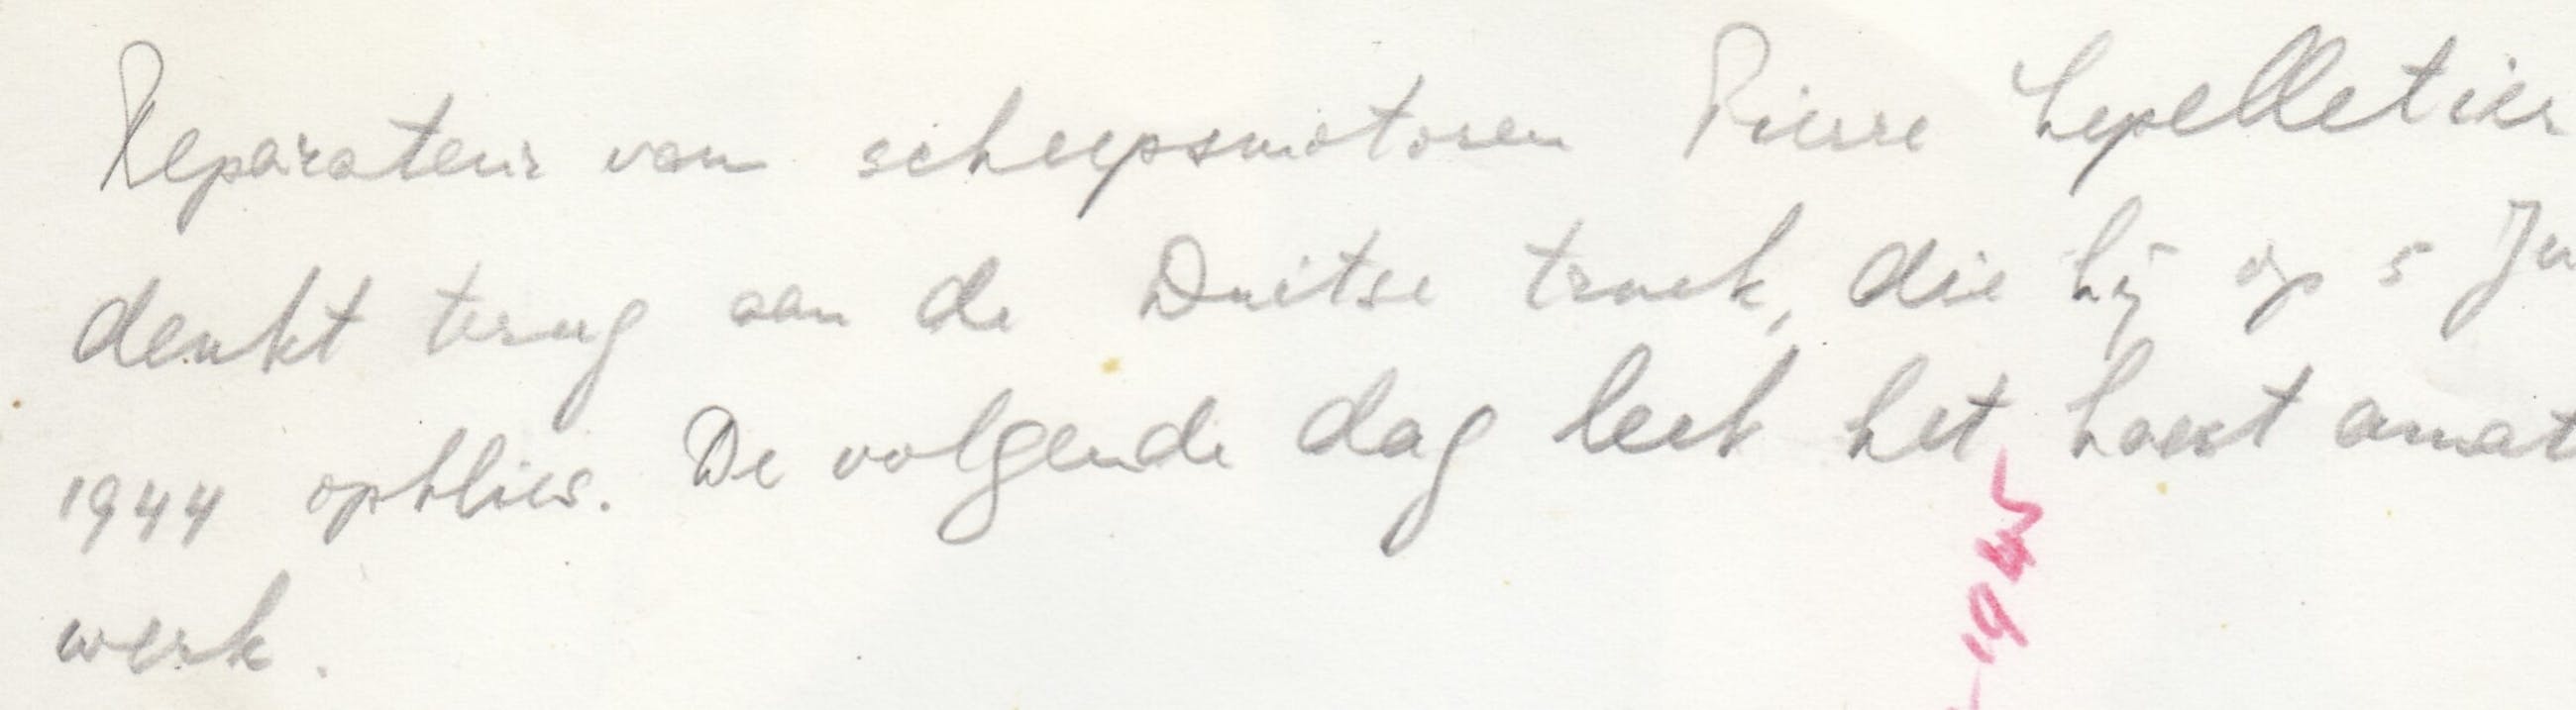 Reparateur van scheepsmotoren Pierre Lepelletier
denkt terug aan de Duitse truck, die hij op 5 Ju
1944 opblies. De volgende dag leek het haast amat
werk.